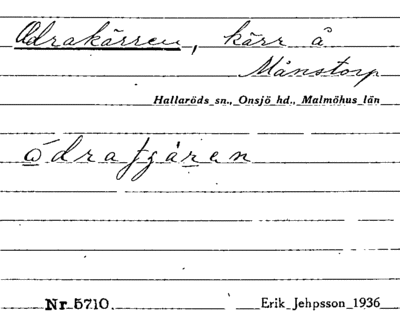 Odrakärren, kärr å
Månstorp
Hallaröds sn., Onsjö hd., Malmöhus län
Nr 5710. Erik Jehpsson 1936